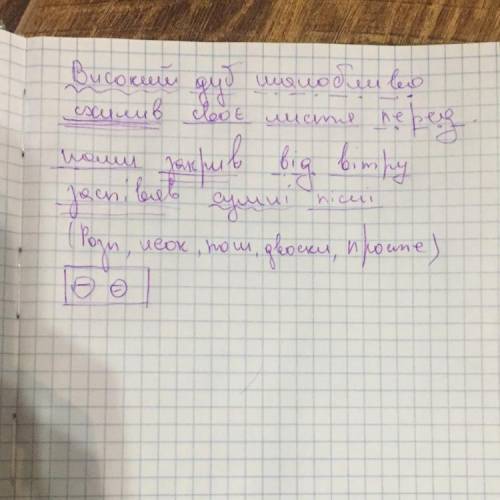 Високий дуб шанобливо
схилив своє листя перед
нами закрив від вітру
заспівав сумні пісні
(Розп, неок, пош, двоскл, просте)